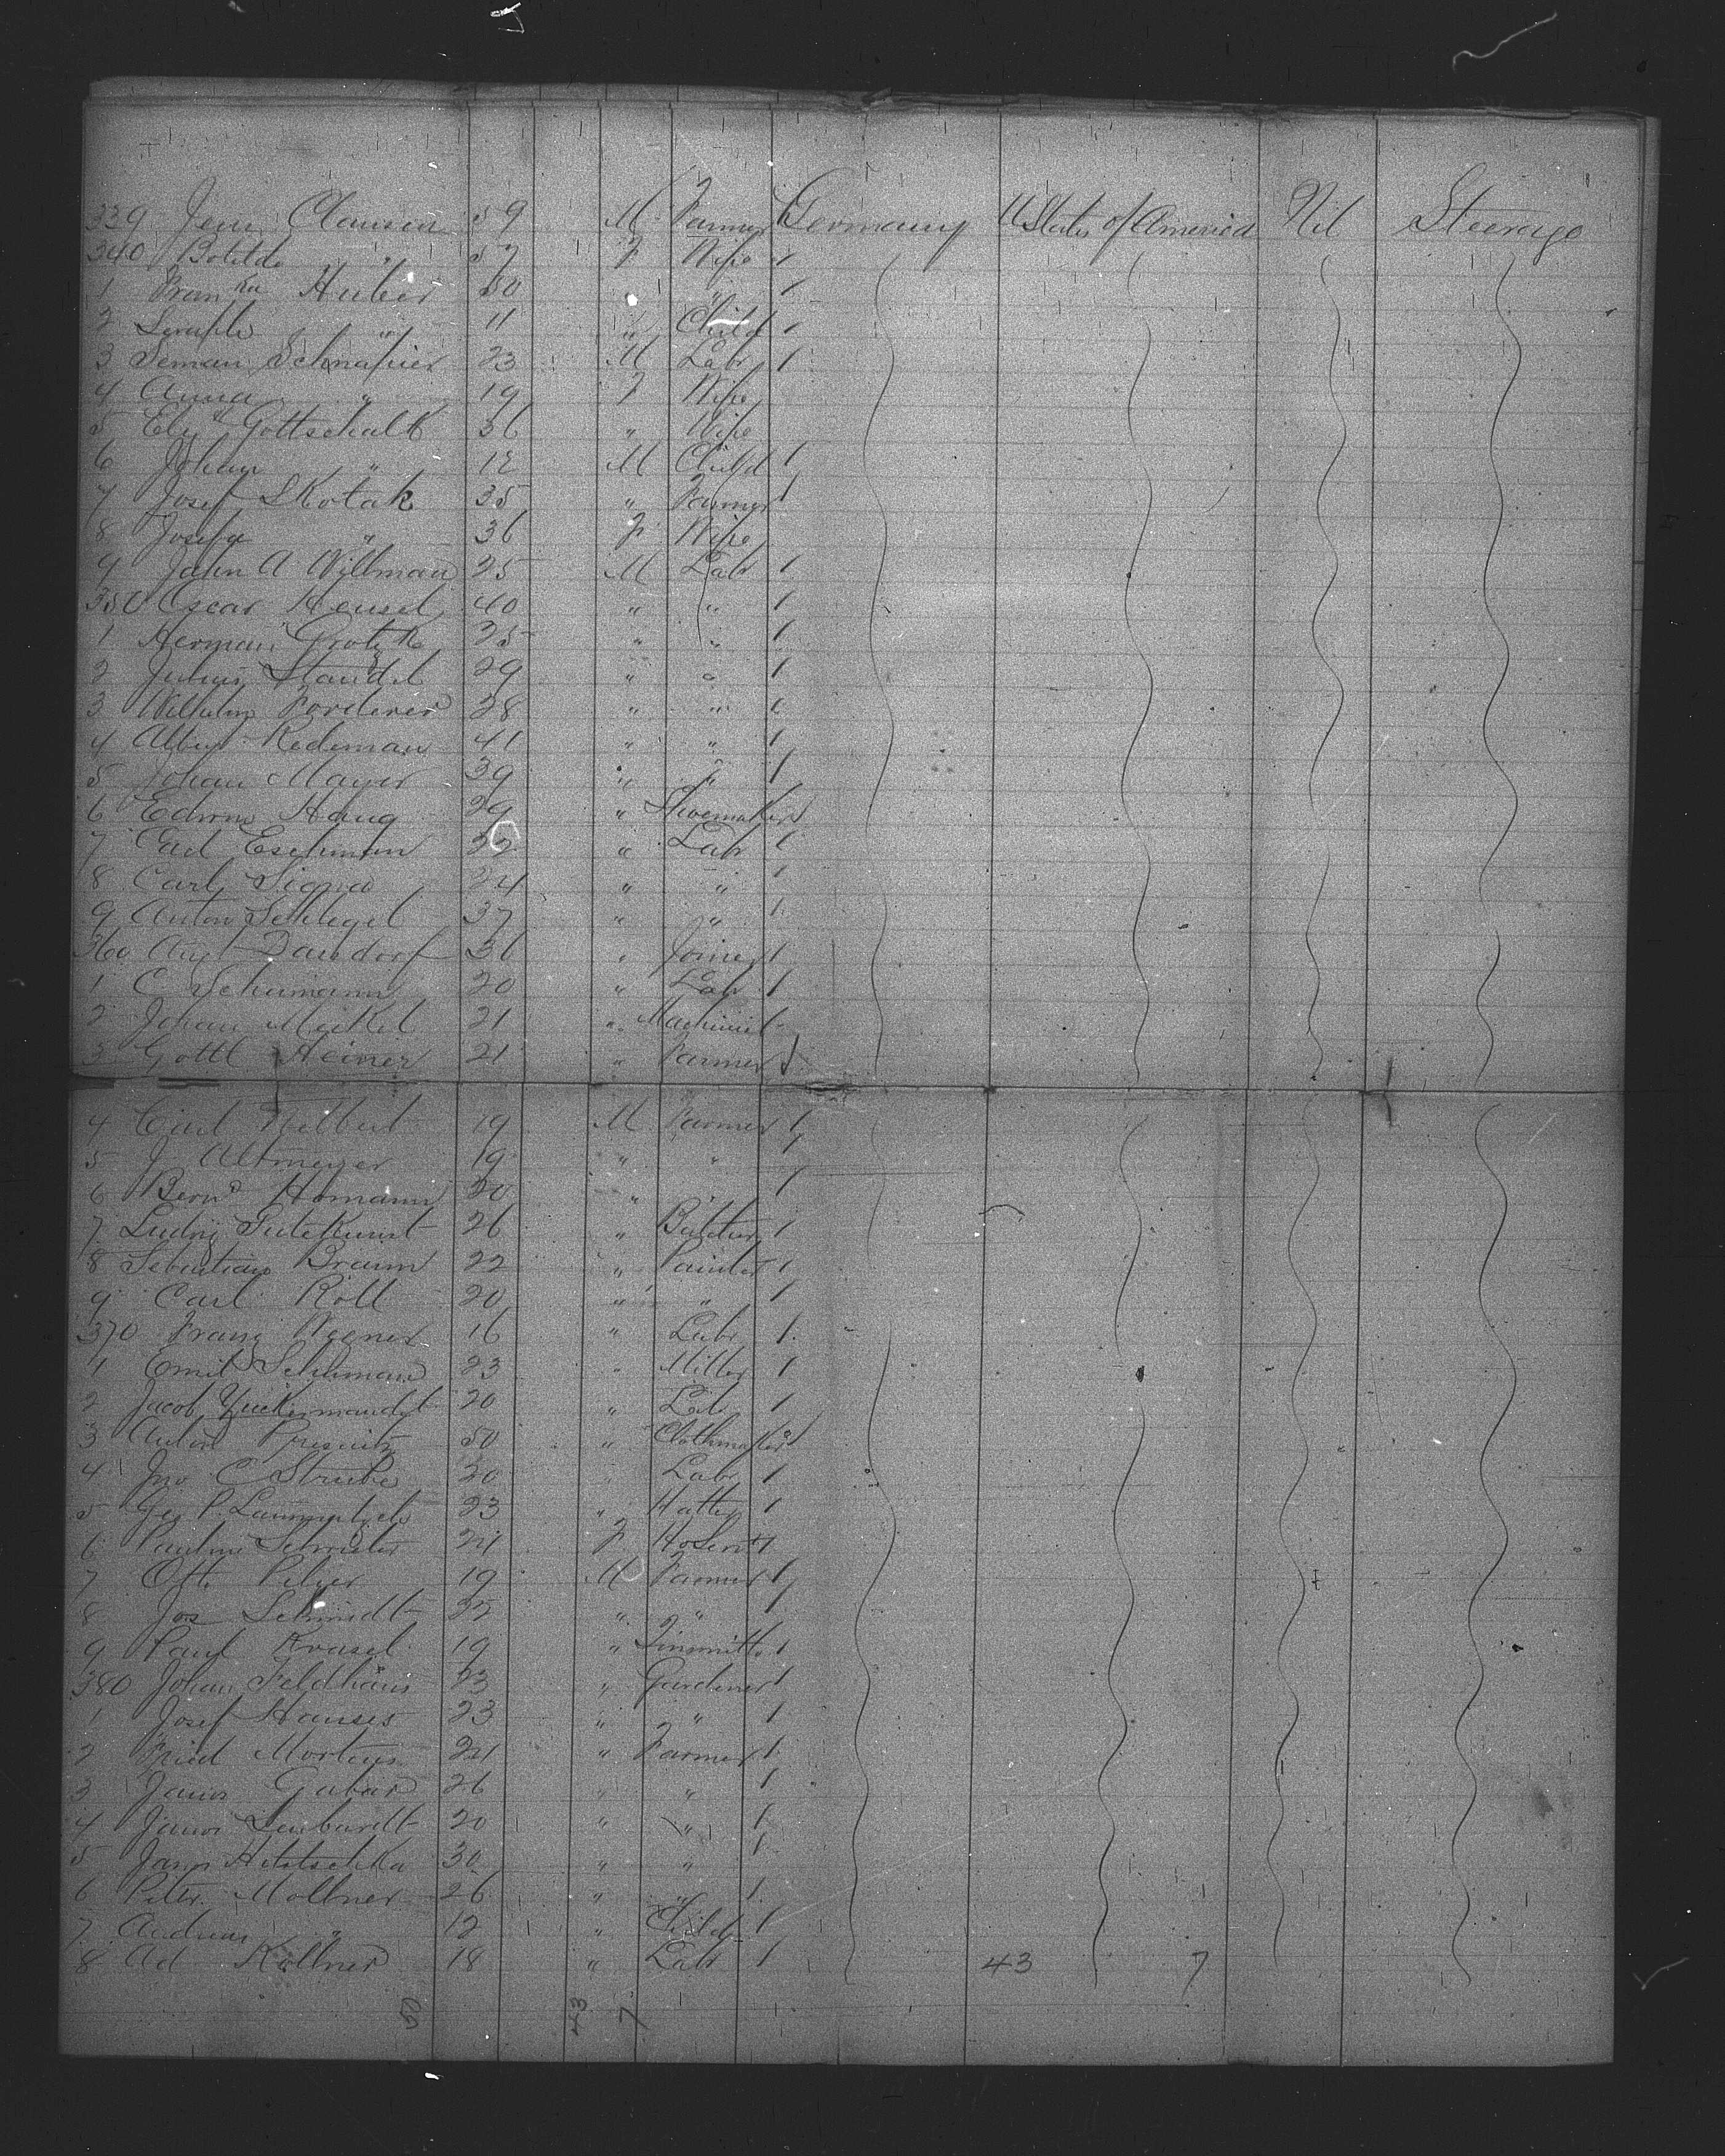 339 Jens Clausen 59 M Farmer Germany U States of America Nil Steerage
340 Botilde " 57 F Wife 1
1 Huber 50 " " 1
2 " 11 " Child 1
3 Schnapier 23 M Labr 1
4 Anna " 19 F Wife
5 Eliz Gottschalk 36 " Wife
6 Johan " 12 M Child 1
7 Josef Skotak 35 " Farmer 1
8 Josefa " 36 F Wife
9 John A Willman 25 M Labr 1
350 Oscar Hensel 40 " " 1
1 Herman Grotzk 25 " " 1
2 Julius Staudel 29 " " 1
3 Wilhelm Forderer 28 " " 1
4 Albert Redeman 41 " " 1
5 Johan Mayer 39 " " 1
6 Edwin Haug 29 " Shoemaker 1
7 Carl Eschman 32 " Labr 1
8 Carl 24 " " 1
9 Anton Schlegel 37 " " 1
360 Aug 36 " Joiner 1
1 C Schumann 20 " Labr 1
2 Johan Meikel 21 " Machinist
3 Gottl Heiner 21 " Farmer 1
4 Carl 19 M Farmer 1
5 J Altmeyer 19 " " 1
6 Bernd Homann 20 " " 1
7 Ludwig Gutekunst 26 " Butcher 1
8 Sebastian Braun 22 " Painter 1
9 Carl Roll 20 " " 1
370 Franz Wegner 16 " Labr 1
1 Emil Schuman 23 " Miller 1
2 Jacob 20 " Lab 1
3 Anton 50 " Clothmaker 1
4 Jno C Strube 20 Labr 1
5 Geo P. 23 " Hatter 1
6 Pauline 24 F HoServt 1
7 Otto Pelzer 19 M Farmer 1
8 Jos Schmidt 32 " " 1
9 Paul Krasel 19 " Tinsmith 1
380 Johan Feldhaus 23 " Gardener 1
1 Josef Hauses 23 " " 1
2 Fried Mortens 24 " Farmer 1
3 Janos Gabar 26 " " 1
4 Janos 20 " " 1
5 Janos 30 " " 1
6 Peter Mollner 26 " " 1
7 Andreas " 12 " Child 1
8 Ad Kollner 18 " Labr 1 43 7
43 7